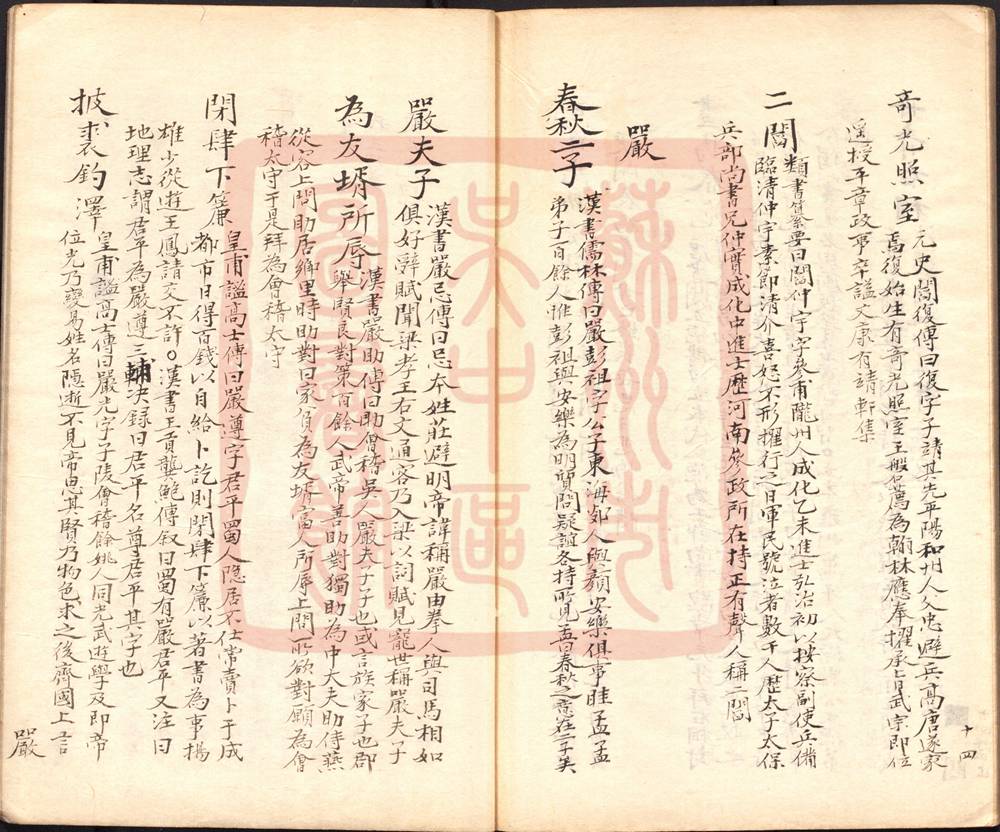 奇光照室
元史閻復傳曰復字子靖其先平陽和州人父忠避兵高唐遂家
焉復始生有奇光照室王磐薦為翰林應奉擢承旨武宗即位
遥授平章政事卒謚文康有靖軒集
二閻
類書篡要曰閻仲宇字參甫隴州人成化乙未進士弘治初以按察副使兵備
臨清仲宇素節清介喜怒不形擢行之日軍民號泣者數千人歷太子太保
兵部尚書兄仲實成化中進士歷河南參政所在持正有聲人稱二閻
嚴
春秋二子
漢書儒林傳曰嚴彭祖字公子東海郯人與顏安樂俱事眭孟孟
弟子百餘人惟彭祖與安樂為明質問疑誼各持所見孟曰春秋之意在二子矣
嚴夫子
漢書嚴忌傳曰忌本姓莊避明帝諱稱嚴由拳人與司馬相如
俱好辭賦聞梁孝王右文通客乃入梁以詞賦見寵世稱嚴夫子
為友壻所辱
漢書嚴助傳曰助會稽吳人嚴夫子子也或言族家子也郡
舉賢良對策百餘人武帝善助對獨助為中大夫助侍燕
從容上問助居鄉里時助對曰家貧為友壻富人所辱上問所欲對願為會
稽太守于是拜為會稽太守
閉肆下簾
皇甫謐高士傳曰嚴遵字君平蜀人隱居不仕常賣卜于成
都市日得百錢以自給卜訖則閉肆下簾以著書為事揚
雄少從遊王鳳請交不許○漢書王貢龔鮑傳叙曰蜀有嚴君平又注曰
地理志謂君平為嚴遵三輔決録曰君平名尊君平其字也
披裘釣澤
皇甫謐高士傳曰嚴光字子陵會稽餘姚人同光武遊學及即帝
位光乃變易姓名隱逝不見帝思其賢乃物色求之後齊國上言
嚴
十四
蘇州市
吳中區
圖書館